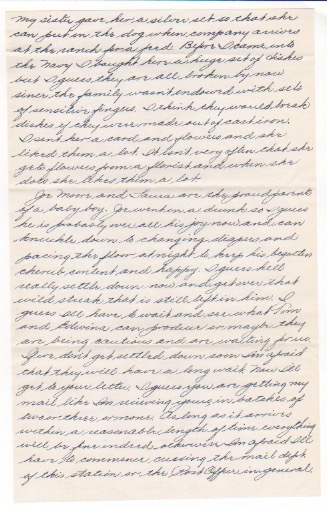 my sister gave her a silver set so that she
can put in the dog when company arrives
at the ranch for a feed. Before I came into
the Navy I bought her a huge set of dishes
but I guess they are all broken by now
since the family wasn't endowed with sets
of sensitive fingers. I think they would break
dishes if they were made out of cast iron.
I sent her a card and flowers and she
liked them a lot. It isn't very often that she
gets flowers from a florist and when she
does she likes them a lot.
Joe Mom, and Laura are the proud parents
of a baby boy. Joe went on a drunk so I guess
he is probably over all his joy now and can
knuckle down to changing diapers and
pacing the floor at night to keep his
cherub content and happy. I guess he'll
really settle down now and get over that
wild streak that is still left in him. I
guess I'll have to wait and see what Tim
and Edwina can produce or maybe they
are being cautious and are waiting for us.
If we don't get settled down soon I'm afraid
that they will have a long wait. Now I'll
get to your letter. I guess you are getting my
mail like I'm receiving yours, in batches of
two or three or more. As long as it arrives
within a reasonable length of time everything
will be fine indeed otherwise I'm afraid I'll
have to commence cussing the mail dept
of this station or the Post Office in general.